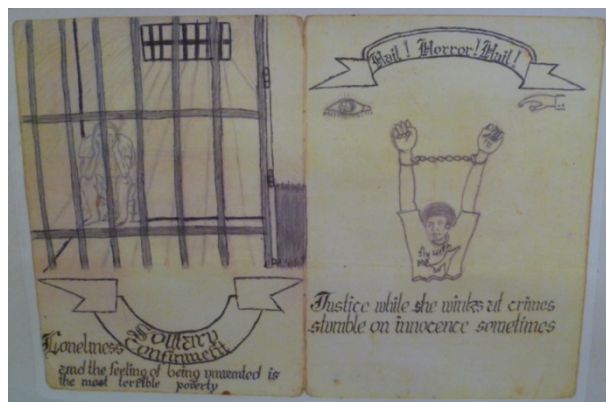 Solitary
Confinment
Loneliness
and the feeling of being unwented is
the most terrible poverty
Hail! Horror! Hail!
fly with
me
Justice while she winks at crimes
stumble on innocence sometimes